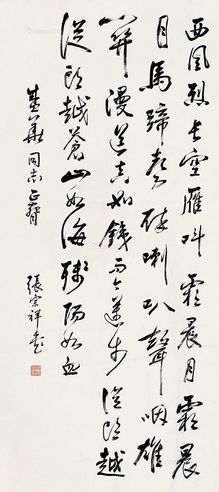 西風烈長空雁叫霜晨月霜晨
月馬蹄聲碎喇叭聲咽雄
關漫道真如鐵而今邁步從頭越
從頭越蒼山如海殘陽如血
華同志正
張宗祥書